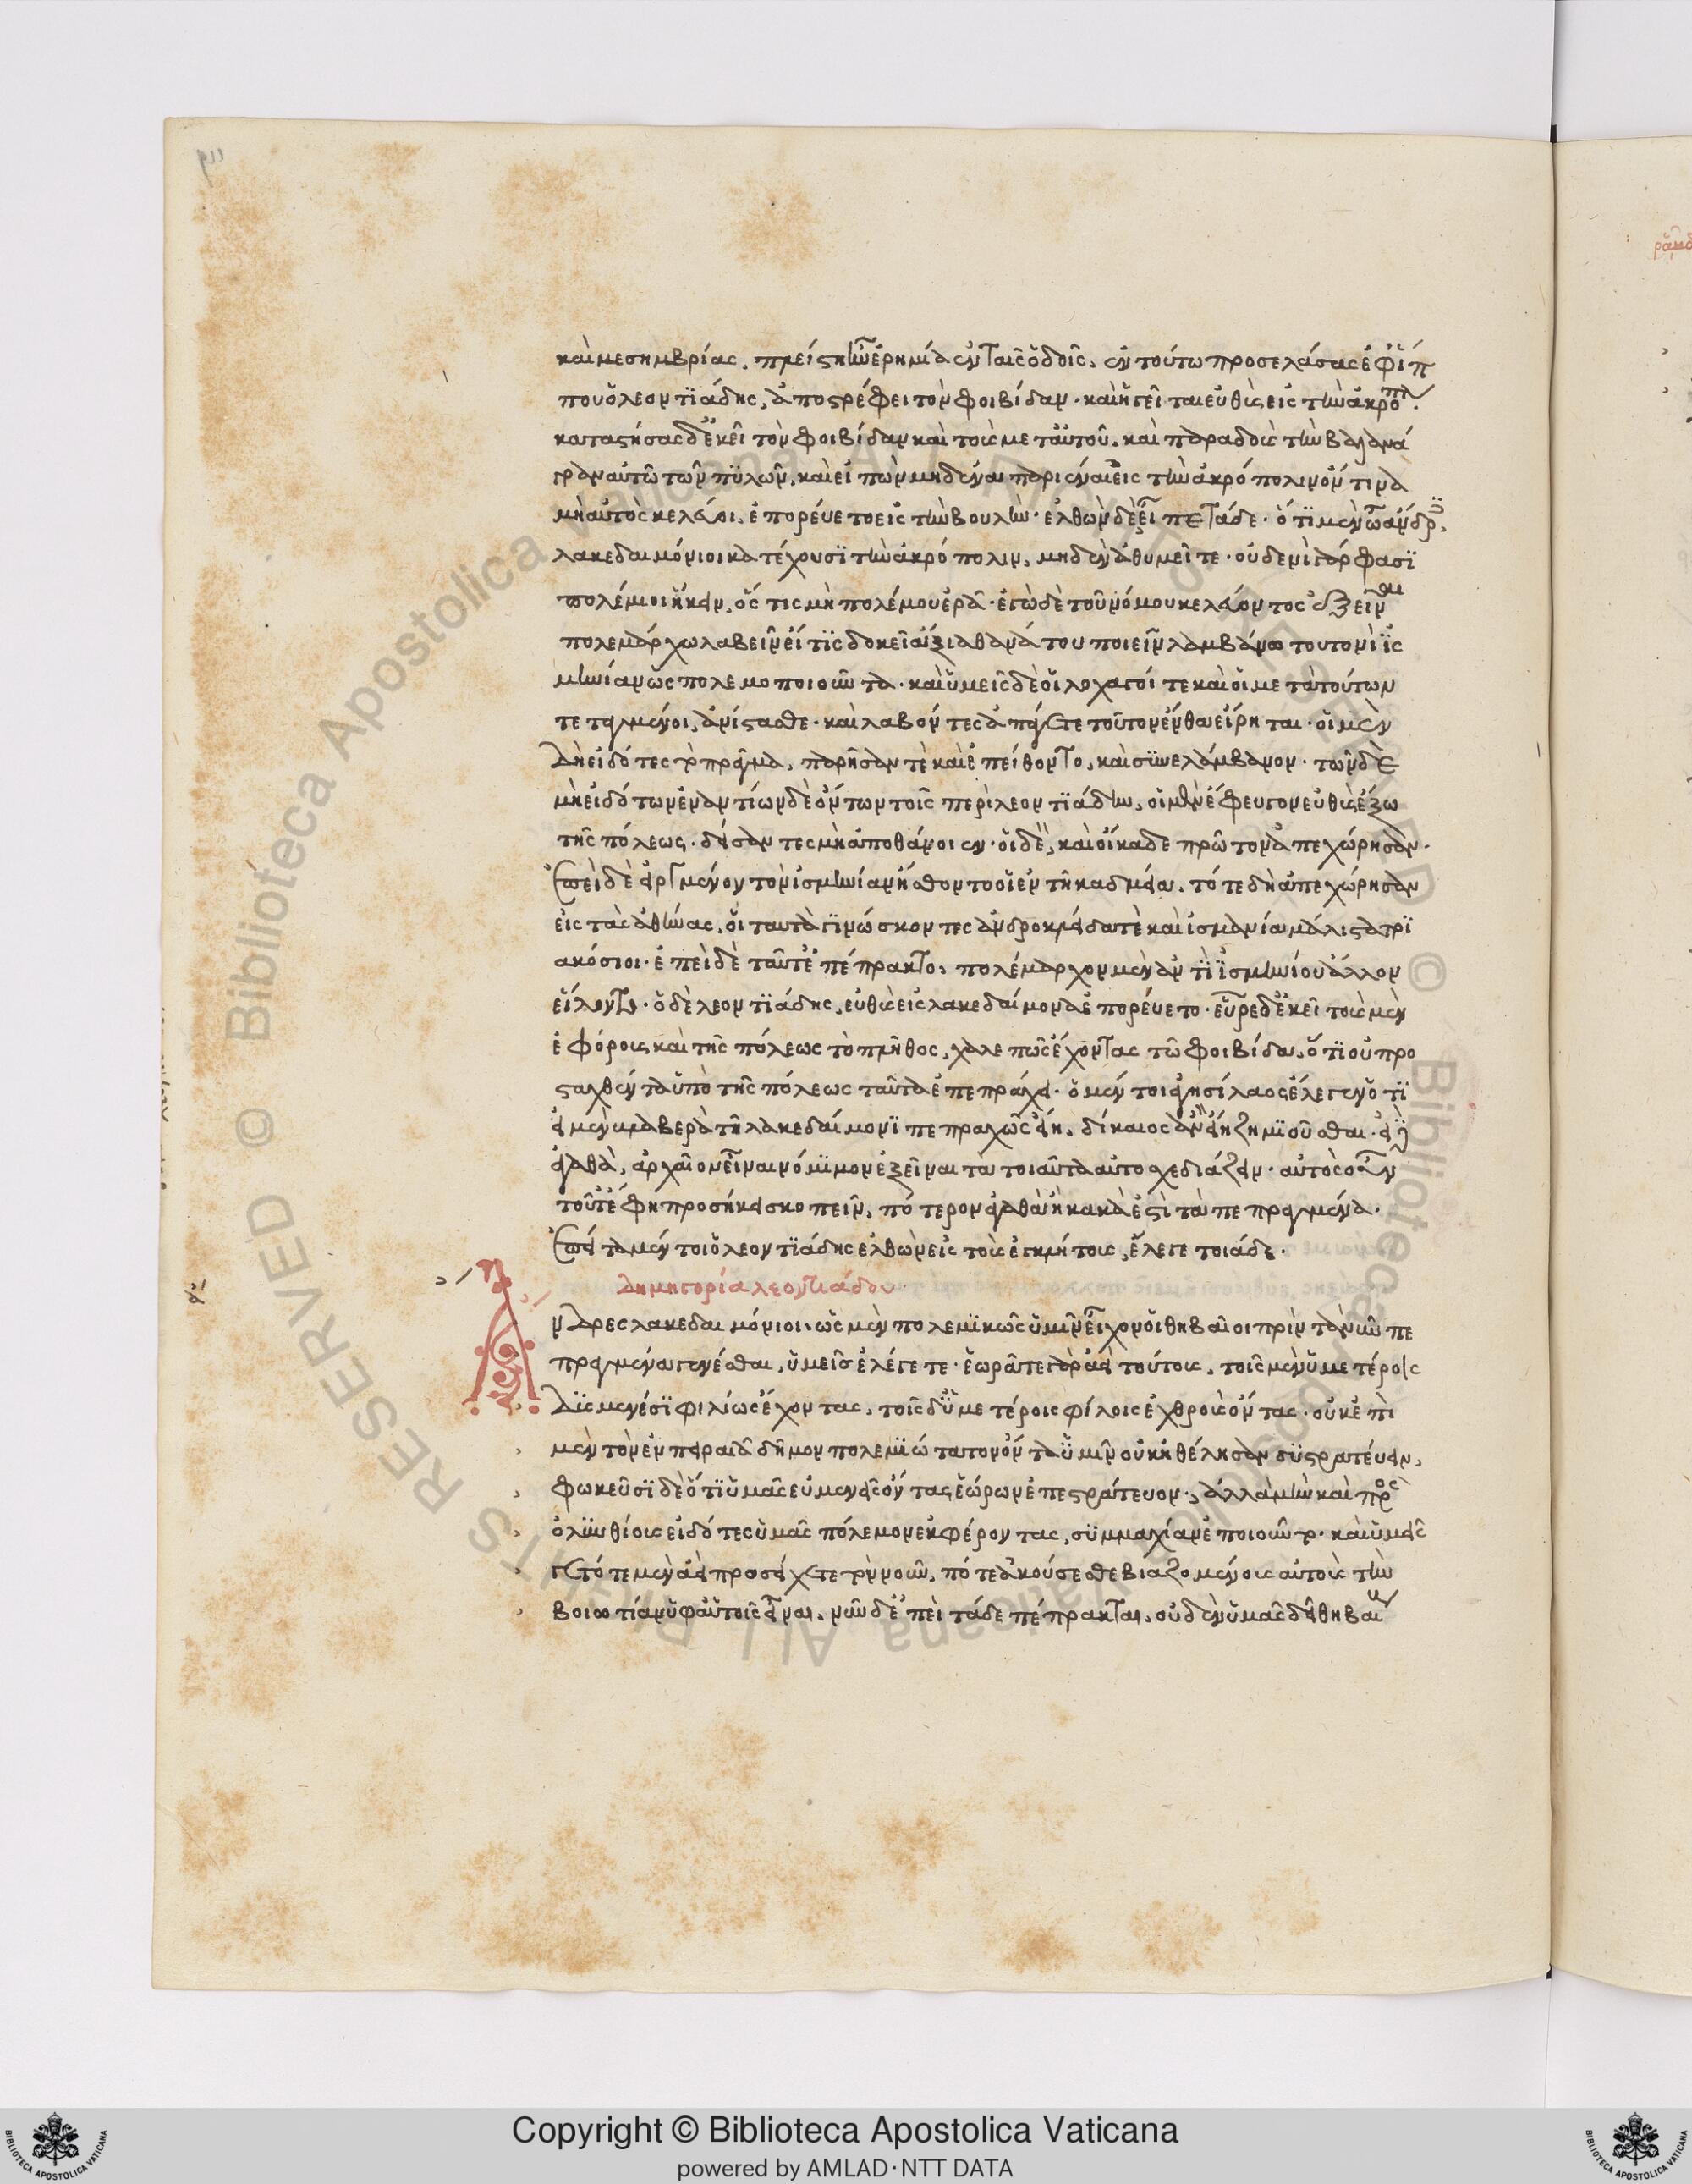 καὶ μεσημβρίας, πλείστη ἦν ἐρημία ἐν ταῖς ὁδοῖς, ἐν τούτω προσελάσας ἐφ ἵπ
που ὁ λεοντιάδης, ἀποστρέφει τὸν φοιβίδαν· καὶ ἡγεῖται εὐθὺς εἰς τὴν ἀκρόπλ.
καταστήσας δ ἐκεῖ τὸν φοιβίδαν καὶ τοὺς μετ αὐτοῦ, καὶ παραδοὺς τὴν βαλανά
γραν αὐτῶ τῶν πυλῶν, καὶ εἰπὼν μηδέναι παριέναι εἰς τὴν ἀκρόπολιν ὅντινα
μὴ αὐτὸς κελεύοι, ἐπορεύετο εἰς τὴν βουλὴν· ἐλθὼν δὲ εἶπε τάδε· ὅτι μὲν ὦ ἄνδρ.
λακεδαιμόνιοι κατέχουσι τὴν ἀκρόπολιν, μηδὲν ἀθυμεῖτε· οὐδενὶ γάρ φασι
πολέμιοι ἥκειν, ὅς τις μὴ πολέμου ἐρᾶ· ἐγὼ δὲ τοῦ νόμου κελεύοντος ἐξεῖναι
πολεμάρχω λαβεῖν εἴ τις δοκεῖ ἄξια θανάτου ποιεῖν λαμβάνω τουτονὶ ἰσ
μηνίαν ὡς πολεμοποιοῦντα· καὶ ὑμεῖς δὲ οἱ λοχαγοί τε καὶ οἱ μετὰ τούτων
τεταγμένοι, ἀνίστασθε· καὶ λαβόντες ἀπάγετε τοῦτον ἔνθα εἴρηται· οἱ μὲν
δὴ εἰδότες τὸ πρᾶγμα, παρῆσαν τὲ καὶ ἐπείθοντο, καὶ συνελάμβανον· τῶν δὲ
μὴ εἰδότων ἐναντίων δὲ ὄντων τοῖς περὶ λεοντιάδην, οἱ μὲν ἔφευγον εὐθὺς ἔξω
τῆς πόλεως· δείσαντες μὴ ἀποθάνοιεν· οἱ δὲ, καὶ οἴκαδε πρῶτον ἀπεχώρησαν·
ἐπεὶ δὲ εἱργμένον τὸν ἰσμηνίαν ἤσθοντο οἱ ἐν τῆ καδμεία, τότε δὴ ἀπεχώρησαν
εἰς τὰς ἀθήνας, οἱ ταυτὰ γινώσκοντες ἀνδροκλείδα τὲ καὶ ἰσμανία μάλιστα τρι
ακόσιοι· ἐπεὶ δὲ ταῦτ ἐπέπρακτο, πολέμαρχον μὲν ἀντὶ ἰσμηνίου ἄλλον
εἵλοντο· ὁ δὲ λεοντιάδης, εὐθὺς εἰς λακεδαίμονα ἐπορεύετο· εὗρε δ ἐκεῖ τοὺς μὲν
ἐφόρους καὶ τῆς πόλεως τὸ πλῆθος, χαλεπῶς ἔχοντας τῶ φοιβίδα, ὅτι οὐ προ
σταχθέντα ὑπὸ τῆς πόλεως ταῦτα ἐπεπράχει· ὁ μέν τοι ἀγησίλαος ἔλεγεν ὅτι
εἰ μὲν βλαβερὰ τῆ λακεδαίμονι πεπραχὼς εἴη, δίκαιος ἂν εἴη ζημιοῦσθαι· εἰ δὲ
ἀγαθὰ, ἀρχαῖον εἶναι νόμιμον ἐξεῖναι τὰ τοιαῦτα αὐτοσχεδιάζειν· αὐτὸ οὖν
τοῦτ ἔφη προσήκει σκοπεῖν, πότερον ἀγαθὰ ἢ κακὰ ἐστὶ τὰ πεπραγμένα·
ἔπειτα μέν τοι ὁ λεοντιάδης ἐλθὼν εἰς τοὺς ἐκκλήτους, ἔλεγε τοιάδε·
Δημηγορία λεοντιάδου
Ανδρες λακεδαιμόνιοι· ὡς μὲν πολεμικῶς ὑμῖν εἶχον οἱ θηβαῖοι πρὶν τὰ νῦν πε
πραγμένα γενέσθαι, ὑμεῖς ἐλέγετε· ἑωρᾶτε γὰρ ἀεὶ τούτους, τοῖς μὲν ὑμετέροις
δυσμενέσι φιλίως ἔχοντας, τοῖς δ ὑμετέροις φίλοις ἐχθροὺς ὄντας· οὐκ ἐπὶ
μὲν τὸν ἐν πειραιᾶ δῆμον πολεμιώτατον ὄντα ὑμῖν οὐκ ἠθέλησαν συστρατεύειν,
φωκεῦσι δὲ ὅτι ὑμᾶς εὐμενεῖς ὄντας ἑώρων ἐπεστράτευον·, ἀλλὰ μὴν καὶ πρὸς
ὀλυνθίους εἰδότες ὑμᾶς πόλεμον ἐκφέροντας, συμμαχίαν ἐποιοῦντο· καὶ ὑμεῖς
γε τότε μὲν ἀεὶ προσείχετε τὸν νοῦν, πότε ἀκούσεσθε βιαζομένους αὐτοὺς τὴν
βοιωτίαν ὑφ αὑτοῖς εἶναι, νῦν δ ἐπεὶ τάδε πέπρακται, οὐδὲν ὑμᾶς δεῖ θηβαί
Copyright © Biblioteca Apostolica Vaticana
powered by AMLAD·NTT DATA